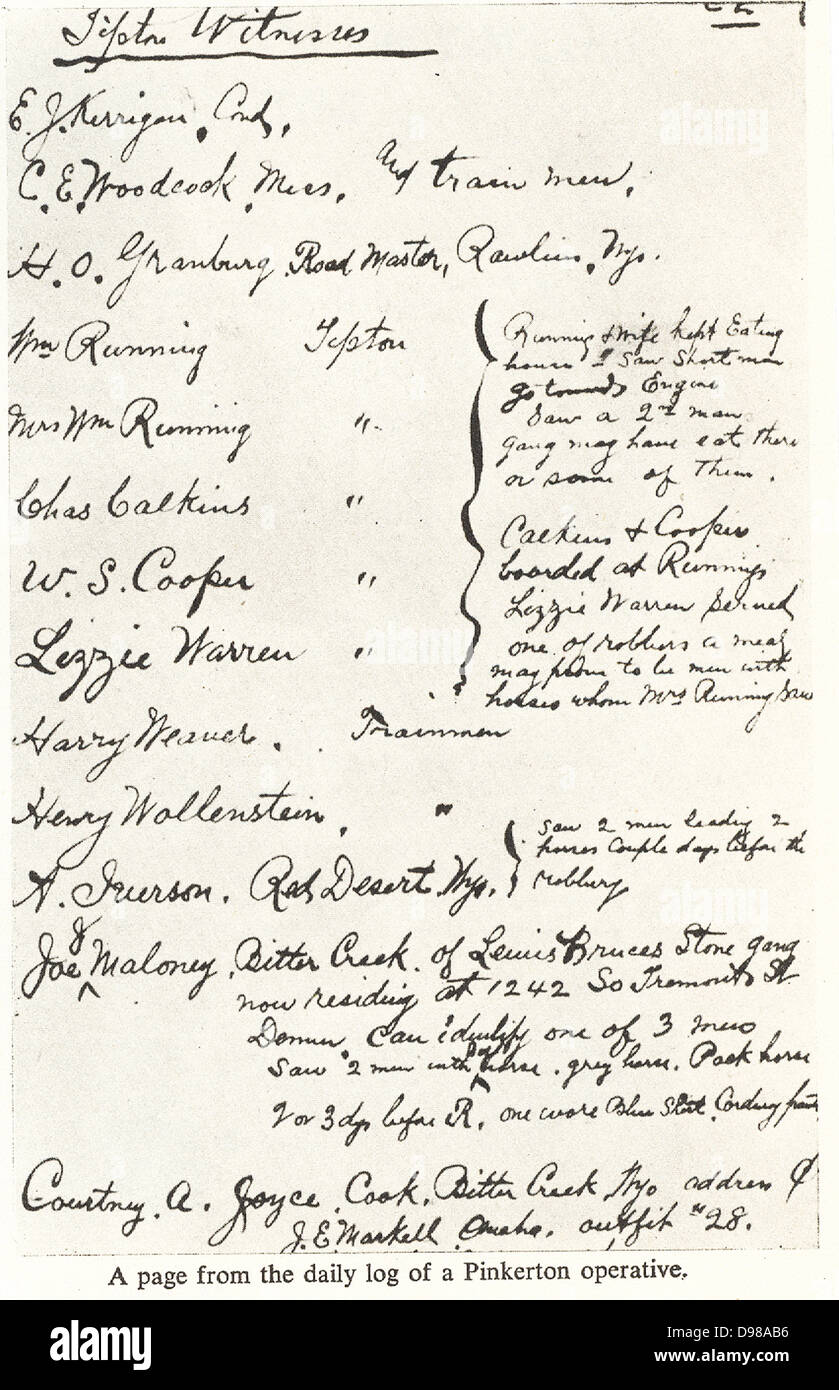 Tipton Witnesses
E. J. Kerrigan, Cond,
C. E. Woodcock Mess, and train men,
H. O. Granburg Road Master, Rawlins, Wyo.
Wm Running Tipton
Mrs Wm Running "
Chas Calkins "
W. S. Cooper "
Lizzie Warren "
Running & wife kept Eating
house Saw Short man
go towards Engine
Saw a 2nd man
gang may have eat there
or some of them.
Calkins & Cooper
boarded at Runnings
Lizzie Warren served
one of robbers a meal
may prove to be men with
horses whom Mrs Running saw
Harry Weaver. Trainmen
Henry Wollenstein, "
A. Iverson. Red Desert Wyo.
Saw 2 men leading 2
horses couple days before the
robbery
Joe J Maloney, Bitter Creek. of Lewis Bruces Stone gang
now residing at 1242 So Tremont St
Denver can identify one of 3 men
Saw 2 men with horse. grey horse. Pack horse
2 or 3 dys before R. one wore Blue Shirt Corduroy pants
Courtney. A. Joyce. Cook. Bitter Creek Wyo address
J. E. Markell Omaha. outfit "28.
A page from the daily log of a Pinkerton operative.
alamy
Image ID: D98AB6
www.alamy.com